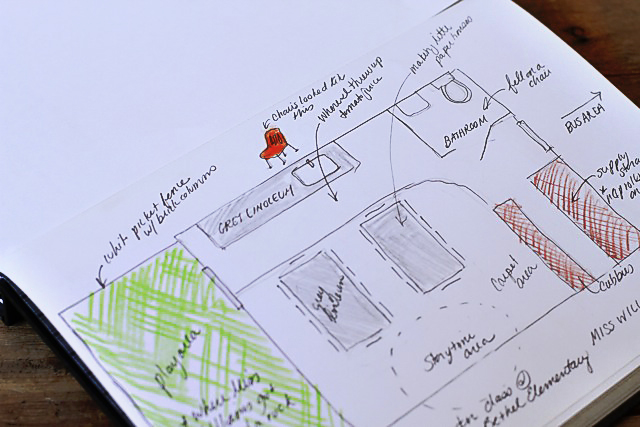 making little
paper houses
chairs looked like
this
where I threw up
tomato juice
fell on a
chair
BUS AREA
BATHROOM
supply
storage
&
GREY LINOLEUM
whit picket fence
w/ brick columns
Carpet
area
Cubbies
Grey
linoleum
playarea
Storytime
area
MISS WILL
where Miss
Williams got
rock
class @
Bethel Elementary